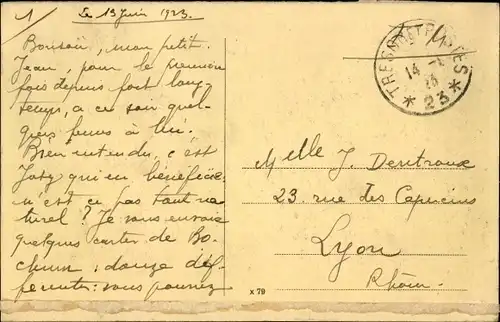 1/ Le 13 Juin 1923.
Bonsoir, mon petit
Jean, pour la première
fois depuis fort long-
temps, a ce soir quel-
ques à lui.
Bien entendu, c'est
qui en bénéficie
n'est ce pas tout na-
turel ? Je vous envoie
quelques cartes de Bo-
chum : douze dif-
ferentes : vous pourrez
TRESOR ET POSTES
14 - 6
23
* 23 *
Melle J. Dentroux
23, rue des Capucins
Lyon
Rhône.
x 79